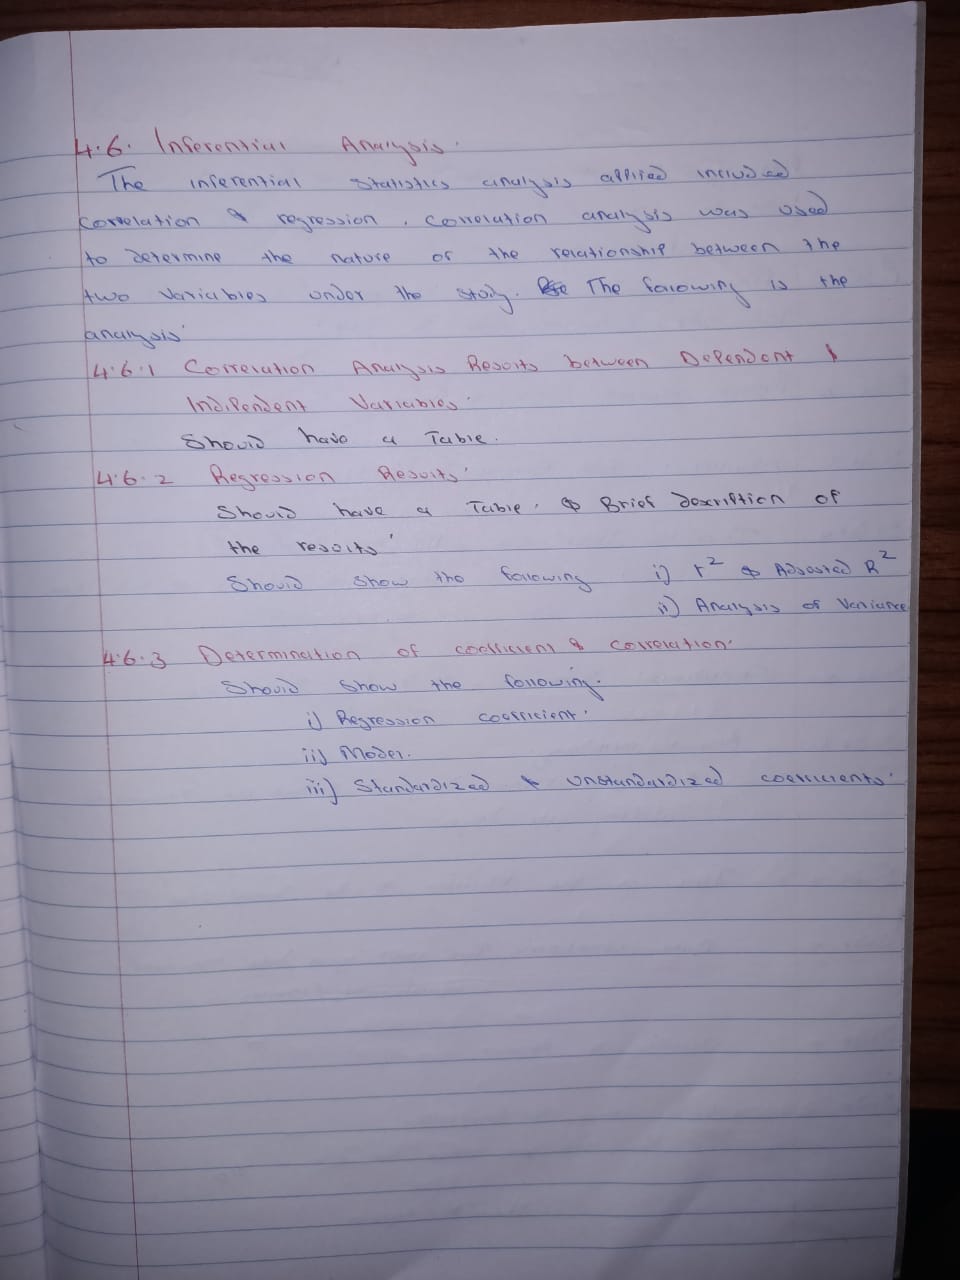 4.6. Inferential Analysis.
The inferential statistics analysis applied included
correlation & regression. Correlation analysis was used
to determine the nature of the relationship between the
two variables under the study. The following is the
analysis.
4.6.1 Correlation Analysis Results between Dependent &
Independent Variables.
Should have a Table.
4.6.2 Regression Results.
Should have a Table. & Brief description of
the results.
Should show the following i) r² & Adjusted R²
ii) Analysis of Variance
4.6.3 Determination of coefficient & correlation.
Should show the following.
i) Regression coefficient.
ii) Model.
iii) Standardized & unstandardized coefficients.